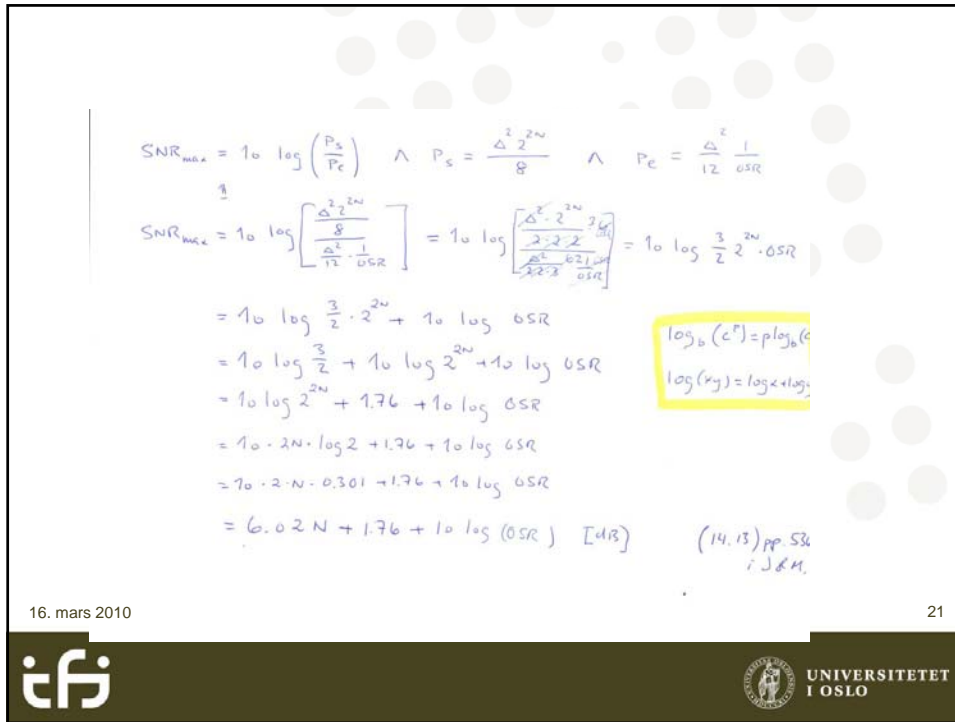 SNRmax = 10 log (Ps/Pe) ∧ Ps = Δ² 2^2N / 8 ∧ Pe = Δ²/12 1/OSR
⇕
SNRmax = 10 log [ (Δ² 2^2N / 8) / (Δ²/12 · 1/OSR) ] = 10 log [ (Δ² · 2^2N / 2·2·2) / (Δ² / 2·2·3 1/OSR) ] = 10 log 3/2 2^2N · OSR
= 10 log 3/2 · 2^2N + 10 log OSR
= 10 log 3/2 + 10 log 2^2N + 10 log OSR
= 10 log 2^2N + 1.76 + 10 log OSR
= 10 · 2N · log 2 + 1.76 + 10 log OSR
= 10 · 2 · N · 0.301 + 1.76 + 10 log OSR
= 6.02 N + 1.76 + 10 log (OSR) [dB]
log_b (c^p) = p log_b (c
log (xy) = log x + log y
(14.13) pp. 536
i J & M.
16. mars 2010
21
ifi
UNIVERSITETET
I OSLO